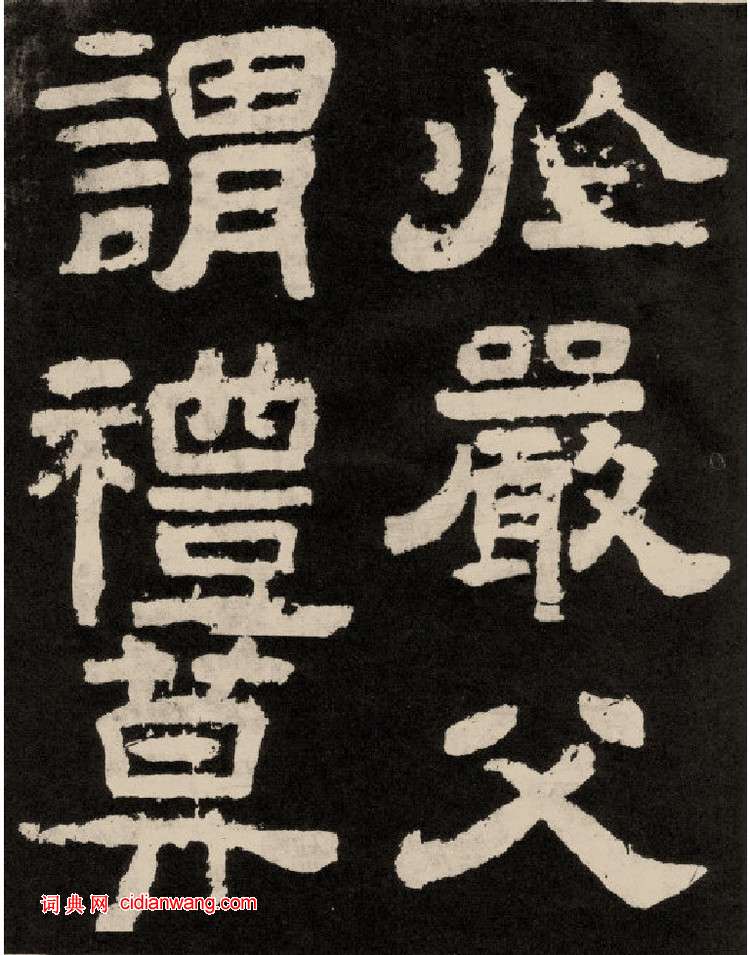 於嚴父
謂禮莫
词典网 cidianwang.com